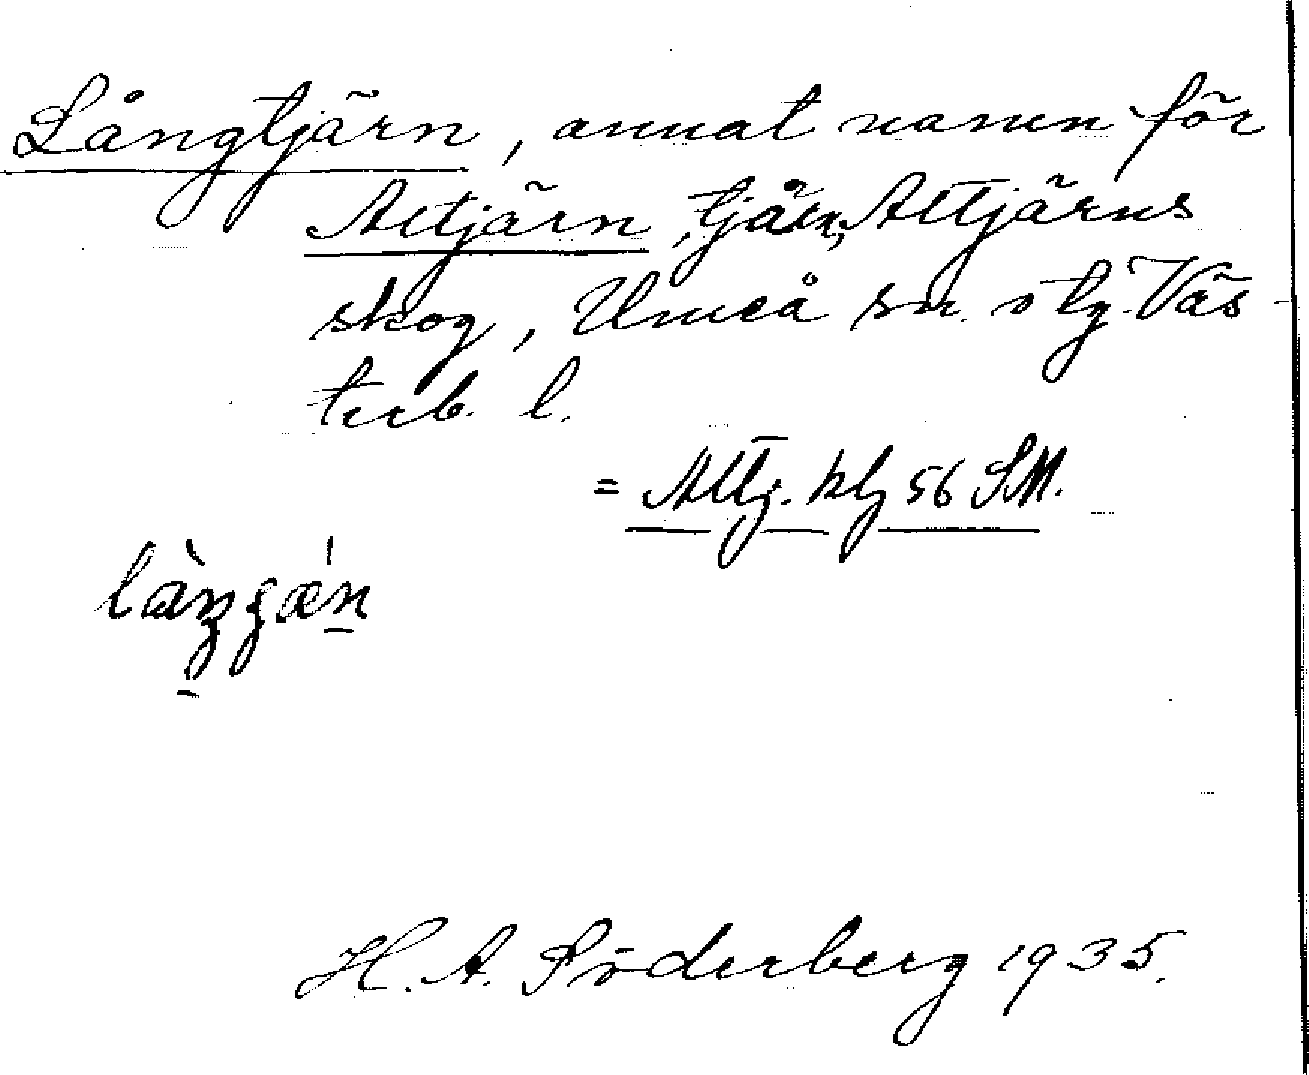 Långtjärn, annat namn för
Alltjärn, tjärn, Alltjärns
skog, Umeå sn. o lg. Väs
terb. l.
= Alltj. klg 56 SM.
H. A. Söderberg 1935.